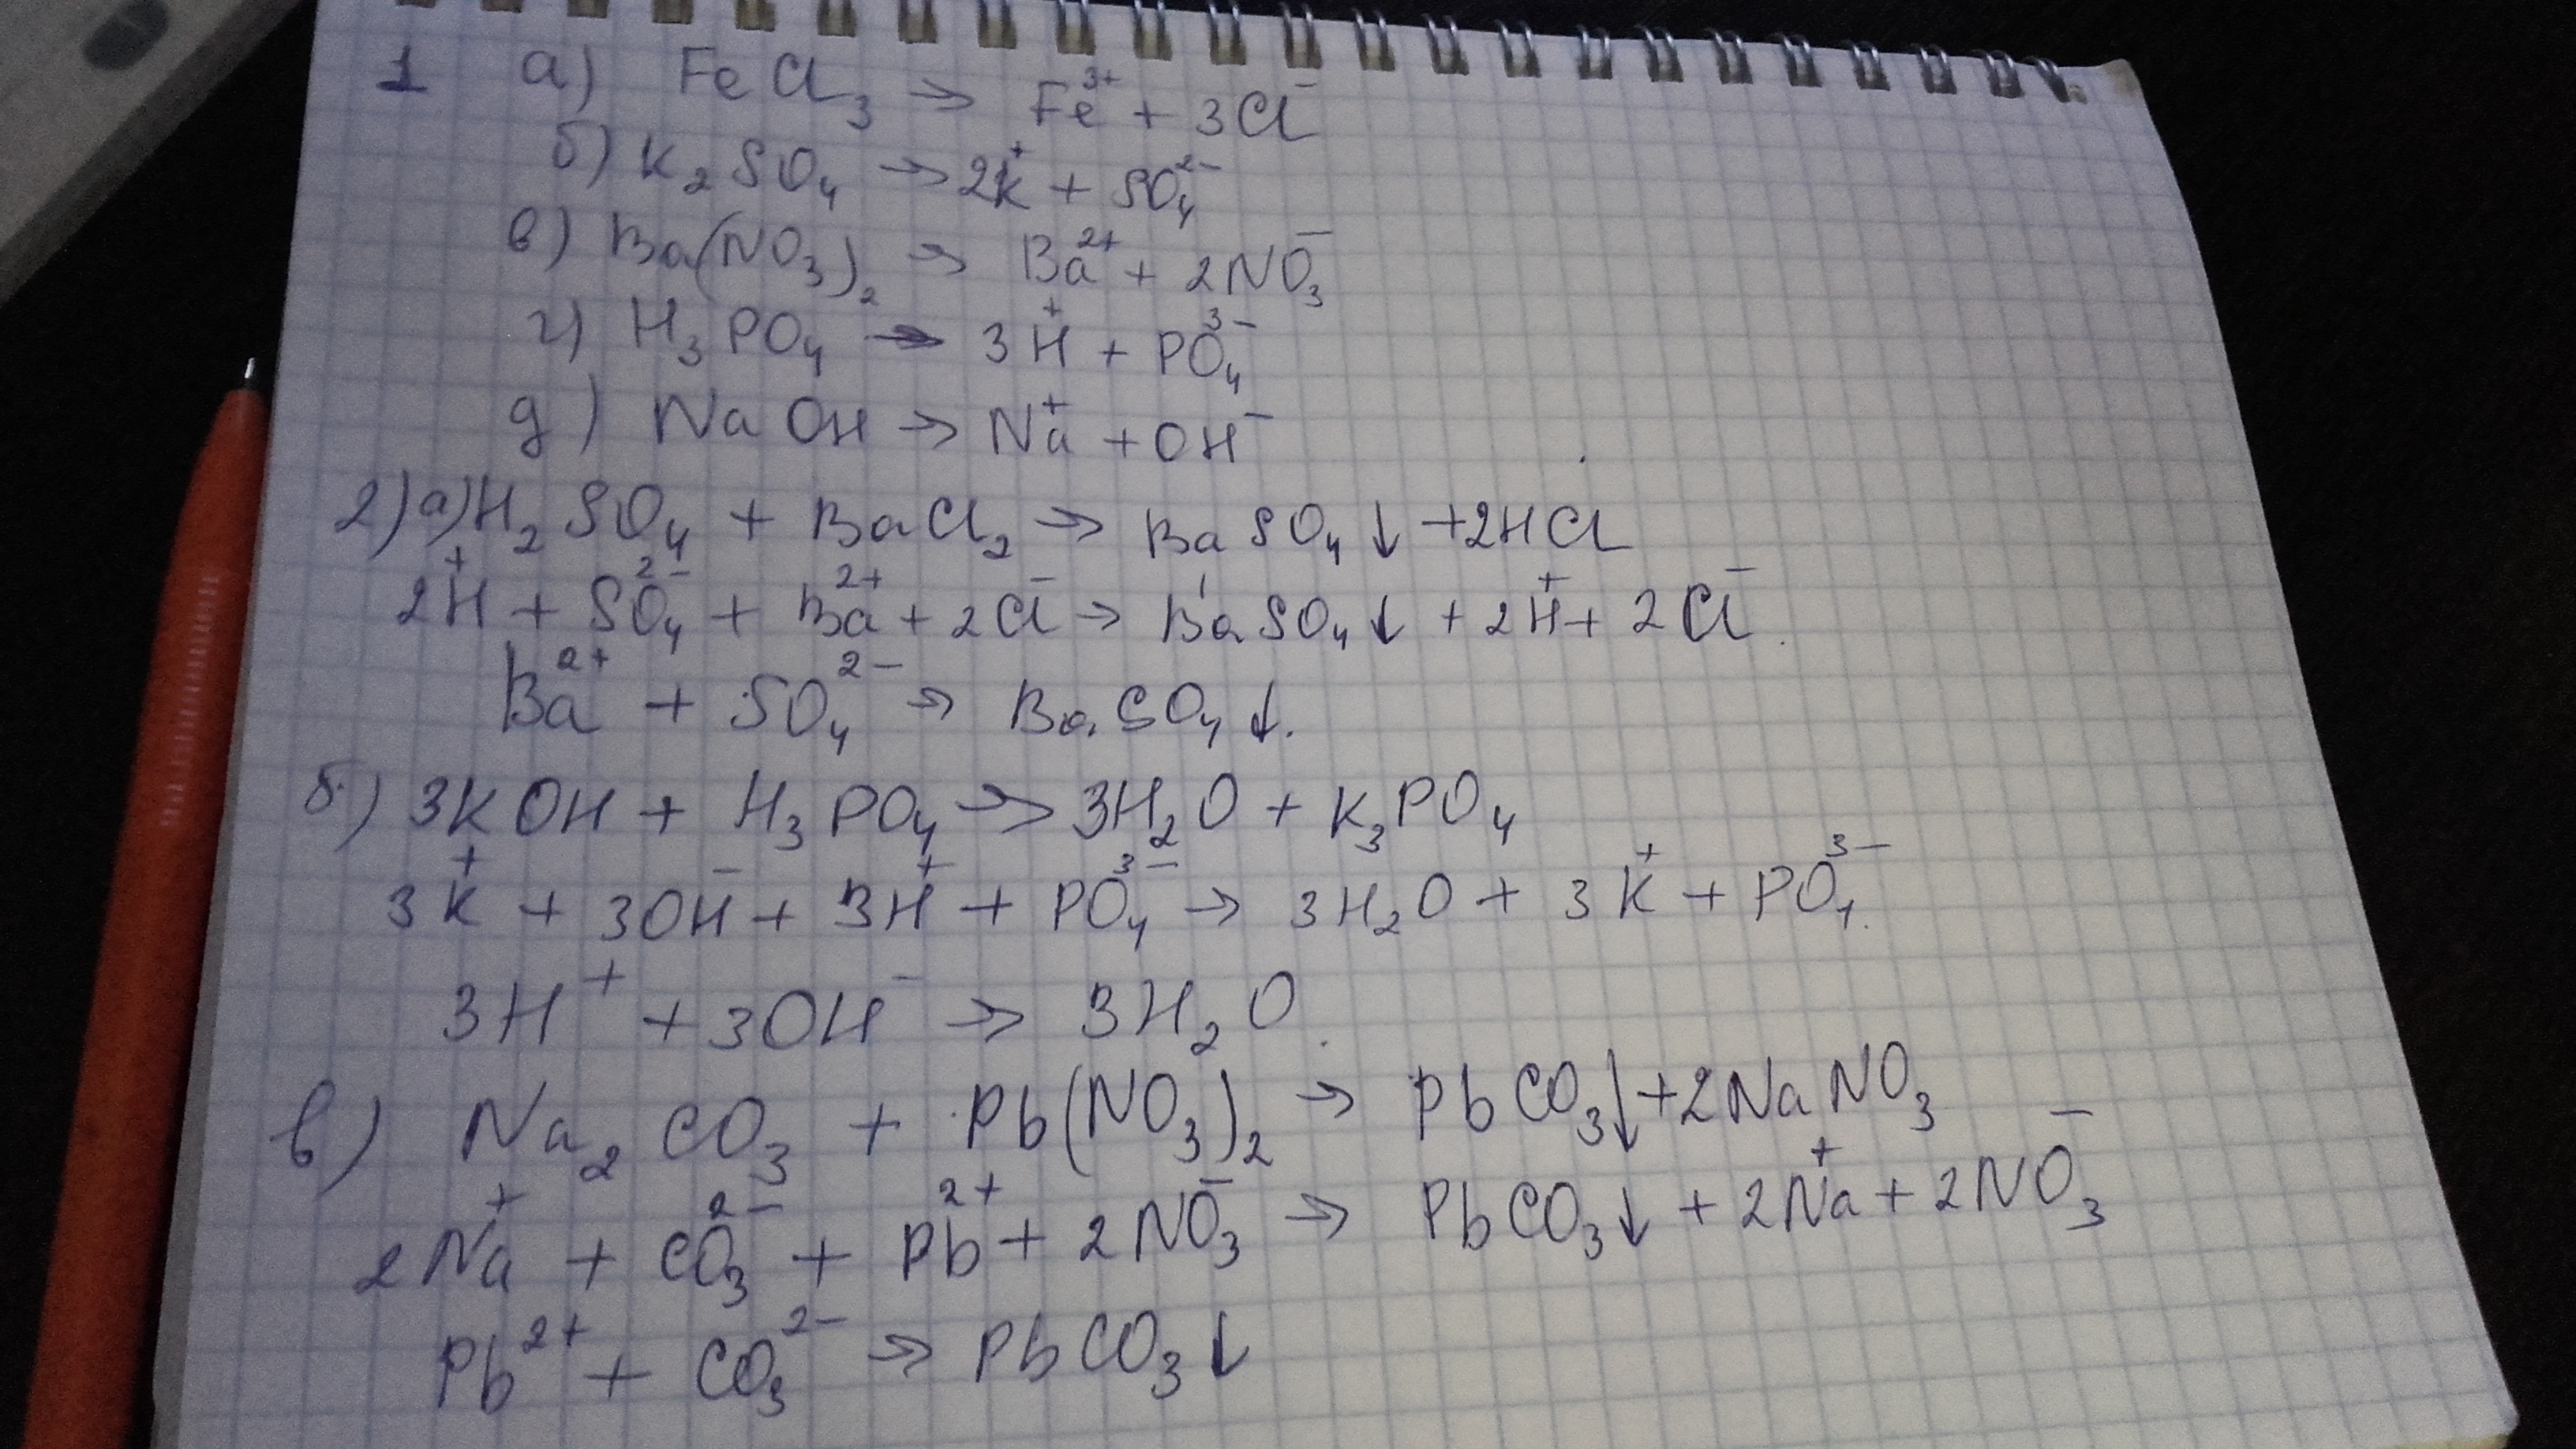 1 а) FeCl₃ → Fe³⁺ + 3Cl⁻
б) K₂SO₄ → 2K⁺ + SO₄²⁻
в) Ba(NO₃)₂ → Ba²⁺ + 2NO₃⁻
г) H₃PO₄ → 3H⁺ + PO₄³⁻
д) NaOH → Na⁺ + OH⁻
2) а) H₂SO₄ + BaCl₂ → BaSO₄↓ + 2HCl
2H⁺ + SO₄²⁻ + Ba²⁺ + 2Cl⁻ → BaSO₄↓ + 2H⁺ + 2Cl⁻
Ba²⁺ + SO₄²⁻ → BaSO₄↓.
б) 3KOH + H₃PO₄ → 3H₂O + K₃PO₄
3K⁺ + 3OH⁻ + 3H⁺ + PO₄³⁻ → 3H₂O + 3K⁺ + PO₄³⁻.
3H⁺ + 3OH⁻ → 3H₂O.
в) Na₂CO₃ + Pb(NO₃)₂ → PbCO₃↓ + 2NaNO₃
2Na⁺ + CO₃²⁻ + Pb²⁺ + 2NO₃⁻ → PbCO₃↓ + 2Na⁺ + 2NO₃⁻
Pb²⁺ + CO₃²⁻ → PbCO₃↓